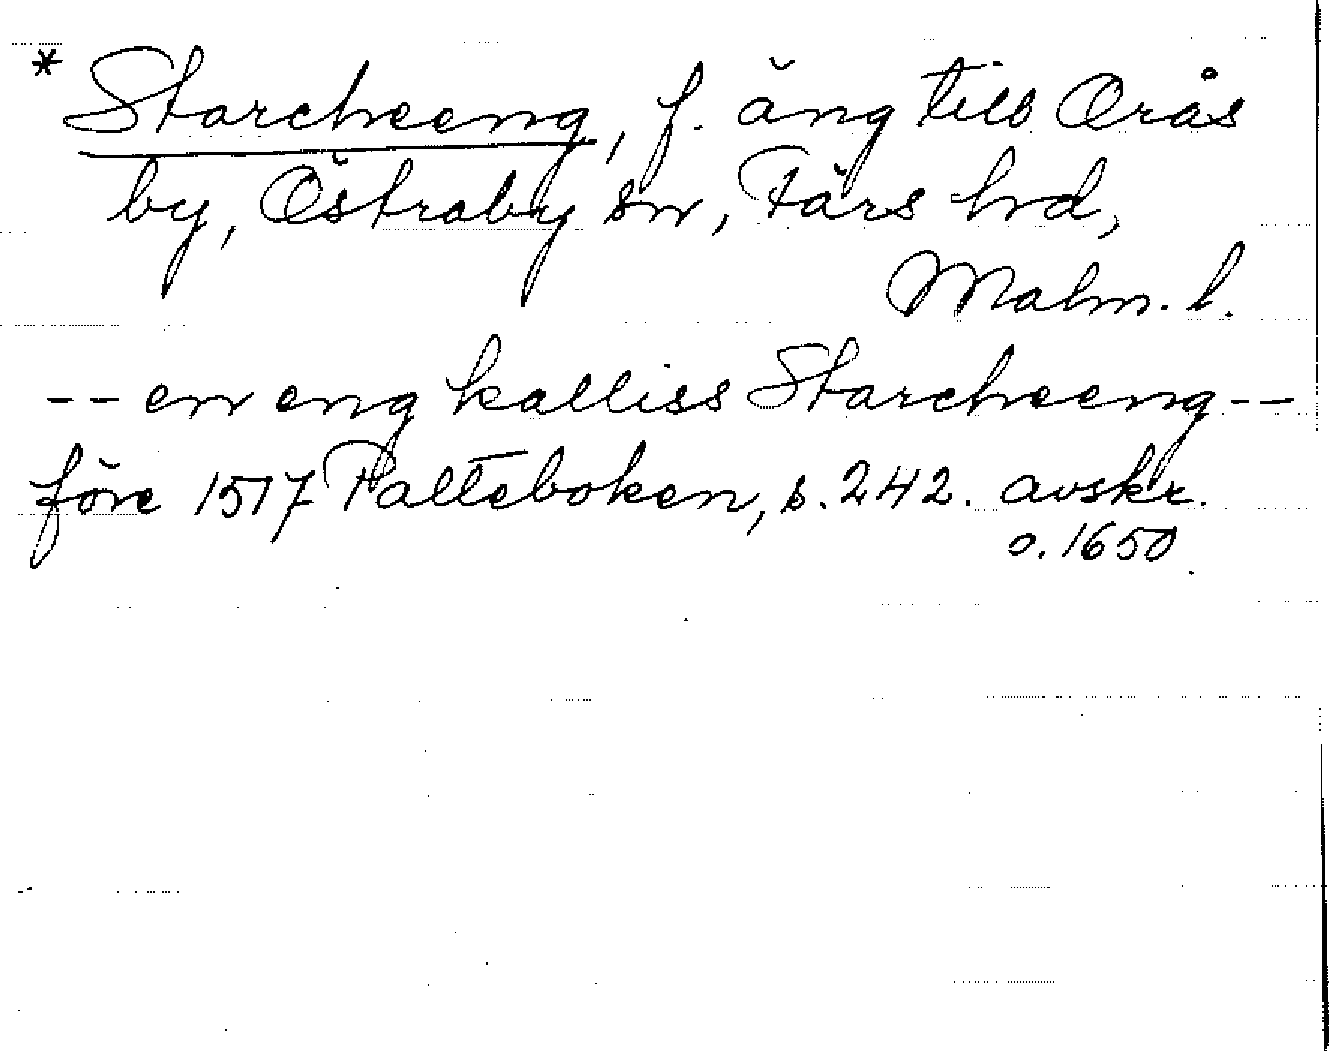 * Starcheeng, f. äng till Orås
by, Östraby sn, Färs hd,
Malm. l.
-- en eng kalliss Starcheeng --
före 1517 Palteboken, s. 242. avskr.
o. 1650